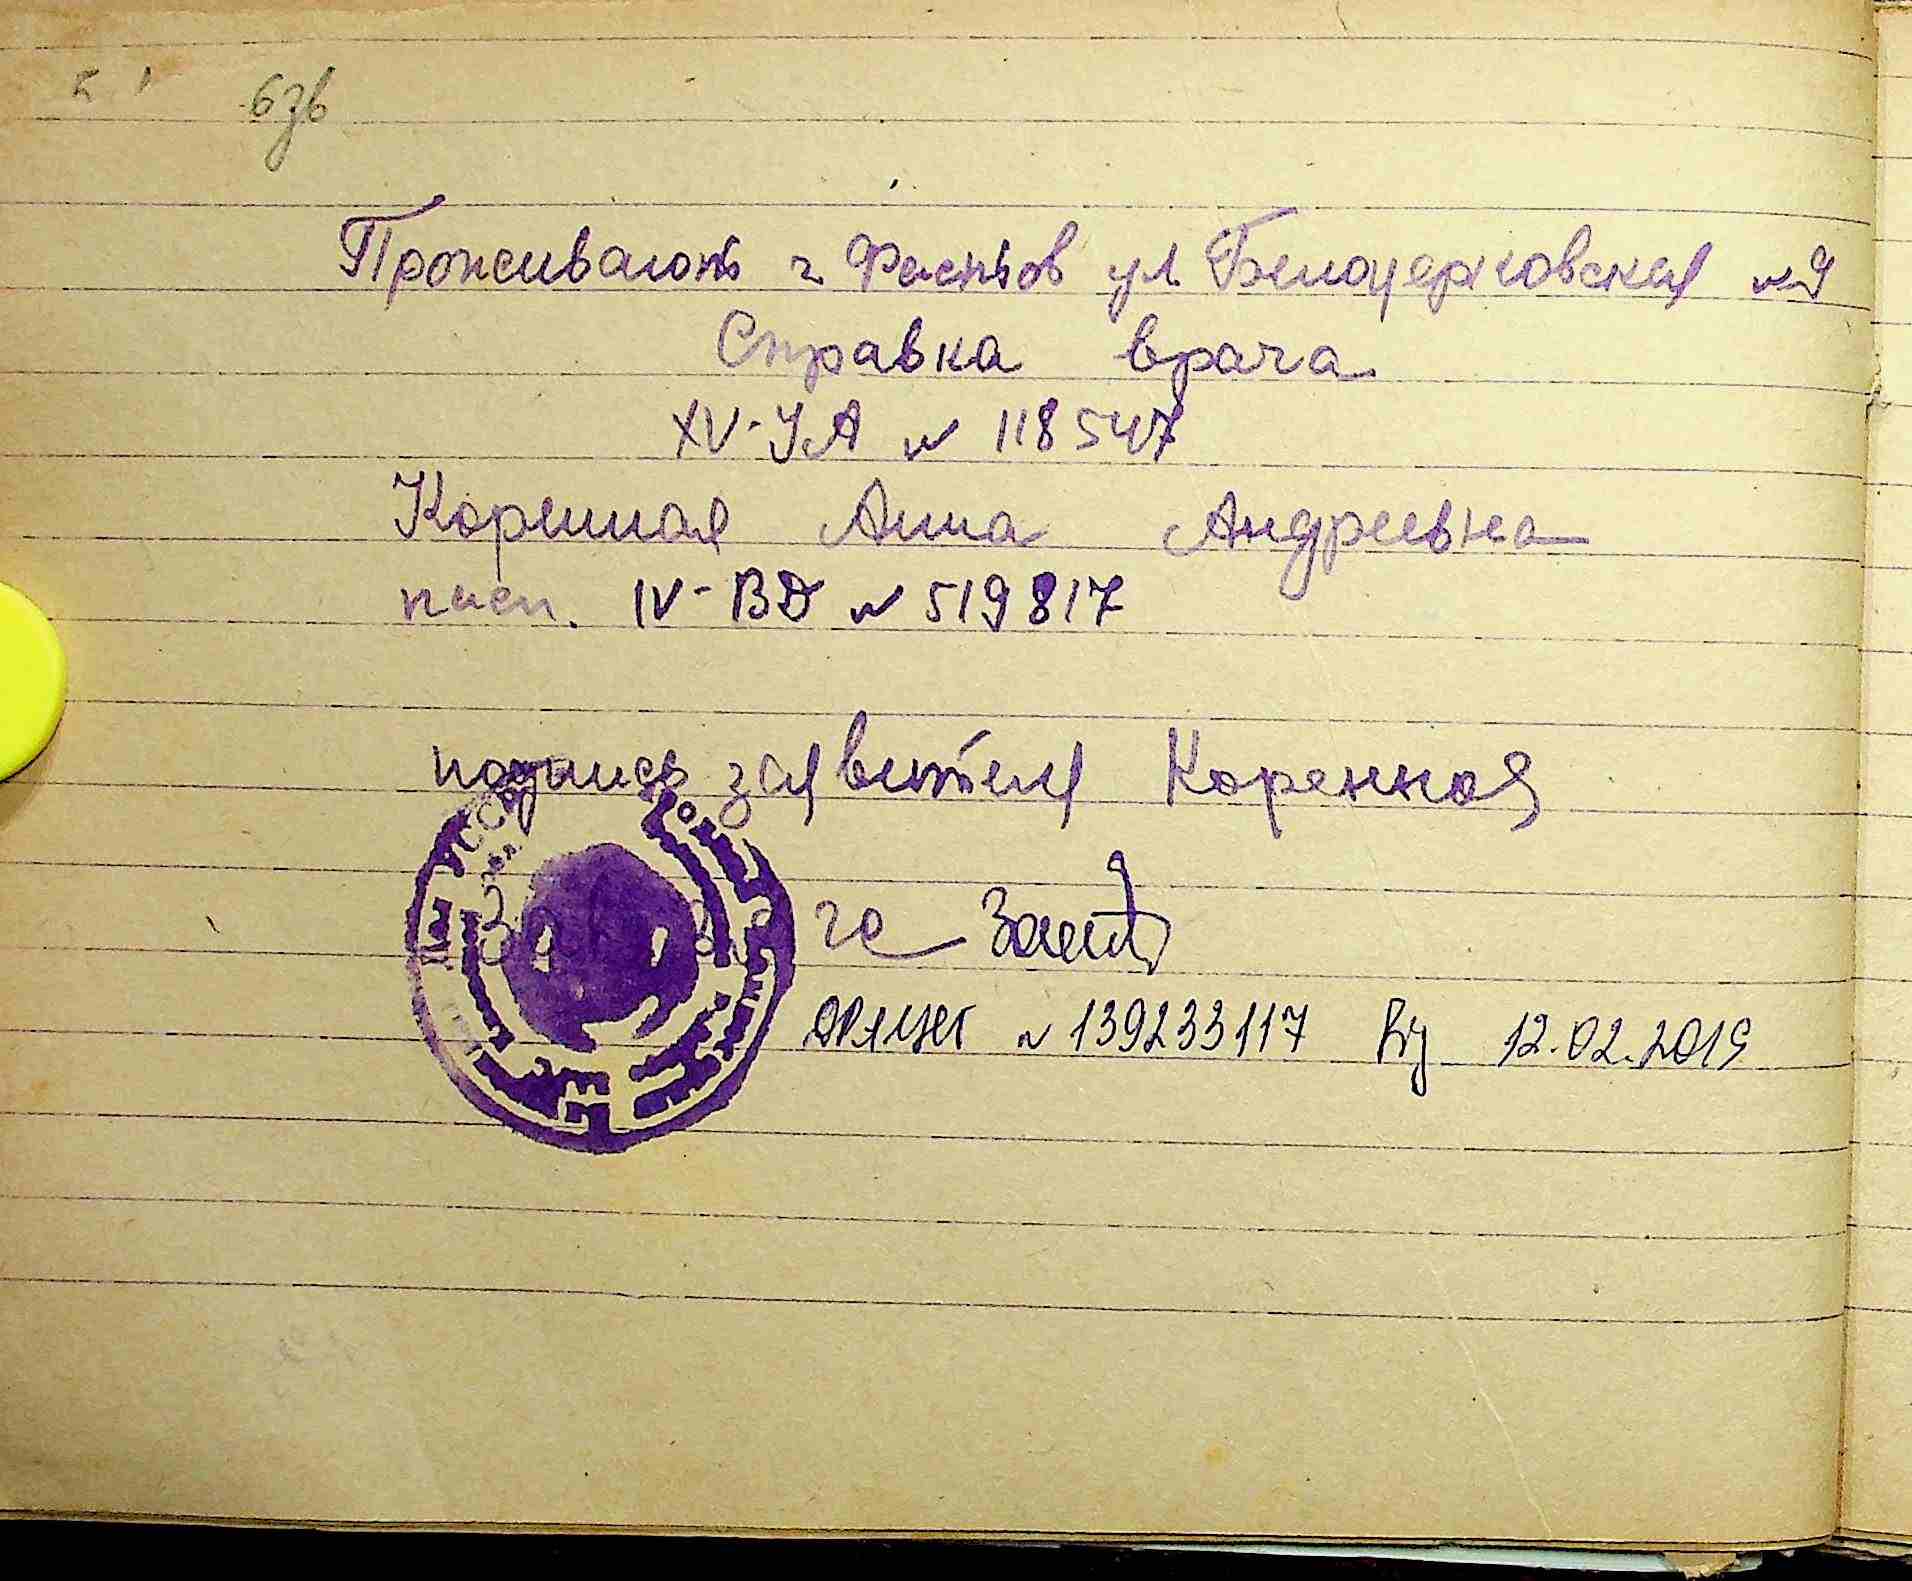 63в
Проживают г Фастов ул Белоцерковская № 9
Справка врача
XV-УА № 118547
Коренная Анна Андреевна
пасп. IV-ВД № 519817
подпись заявителя Коренная
УССР
ДРАЦСГ № 139233117 від 12.02.2019